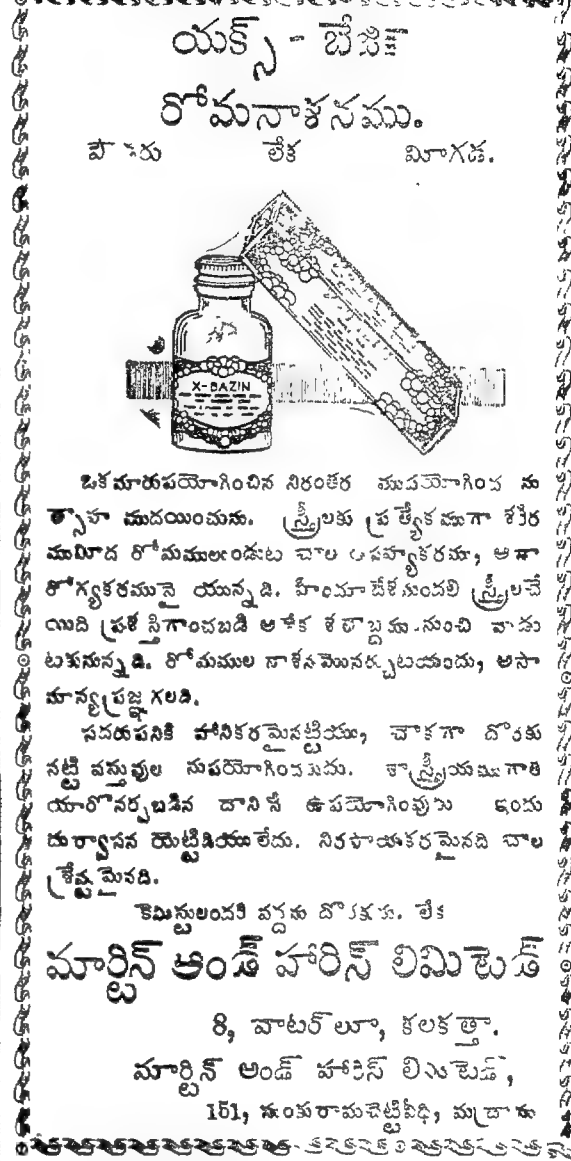 యక్స్ - బేజిన్
రోమనాశనము.
పౌడరు లేక మీగడ.
X-BAZIN
ఒకమారుపయోగించిన నిరంతర ముపయోగించ ను
త్సాహ ముదయించును. స్త్రీలకు ప్రత్యేకముగా శరీర
ముమీద రోమములుండుట చాల అసహ్యకరము, అనా
రోగ్యకరమునై యున్నది. హిందూదేశమందలి స్త్రీలచే
యిది ప్రశస్తిగాంచబడి అనేక శతాబ్దము నుంచి వాడు
టకునున్నది. రోమముల నాశనమొనర్చుటయందు, అసా
మాన్యప్రజ్ఞ గలది.
సదరుపనికి హానికరమైనట్టియు, చౌకగా దొరకు
నట్టి వస్తువుల నుపయోగించకుడు. శాస్త్రీయముగాత
యారొనర్పబడిన దానినే ఉపయోగింపుడు ఇందు
దుర్వాసన యెట్టిదియులేదు. నిరపాయకరమైనది చాల
శ్రేష్టమైనది.
కెమిస్టులందరి వద్దను దొరకును. లేక
మార్టిన్ అండ్ హారిస్ లిమిటెడ్
8, వాటర్‌లూ, కలకత్తా.
మార్టిన్ అండ్ హారిస్ లిమిటెడ్,
151, నుంకురామచెట్టివీధి, మద్రాసు